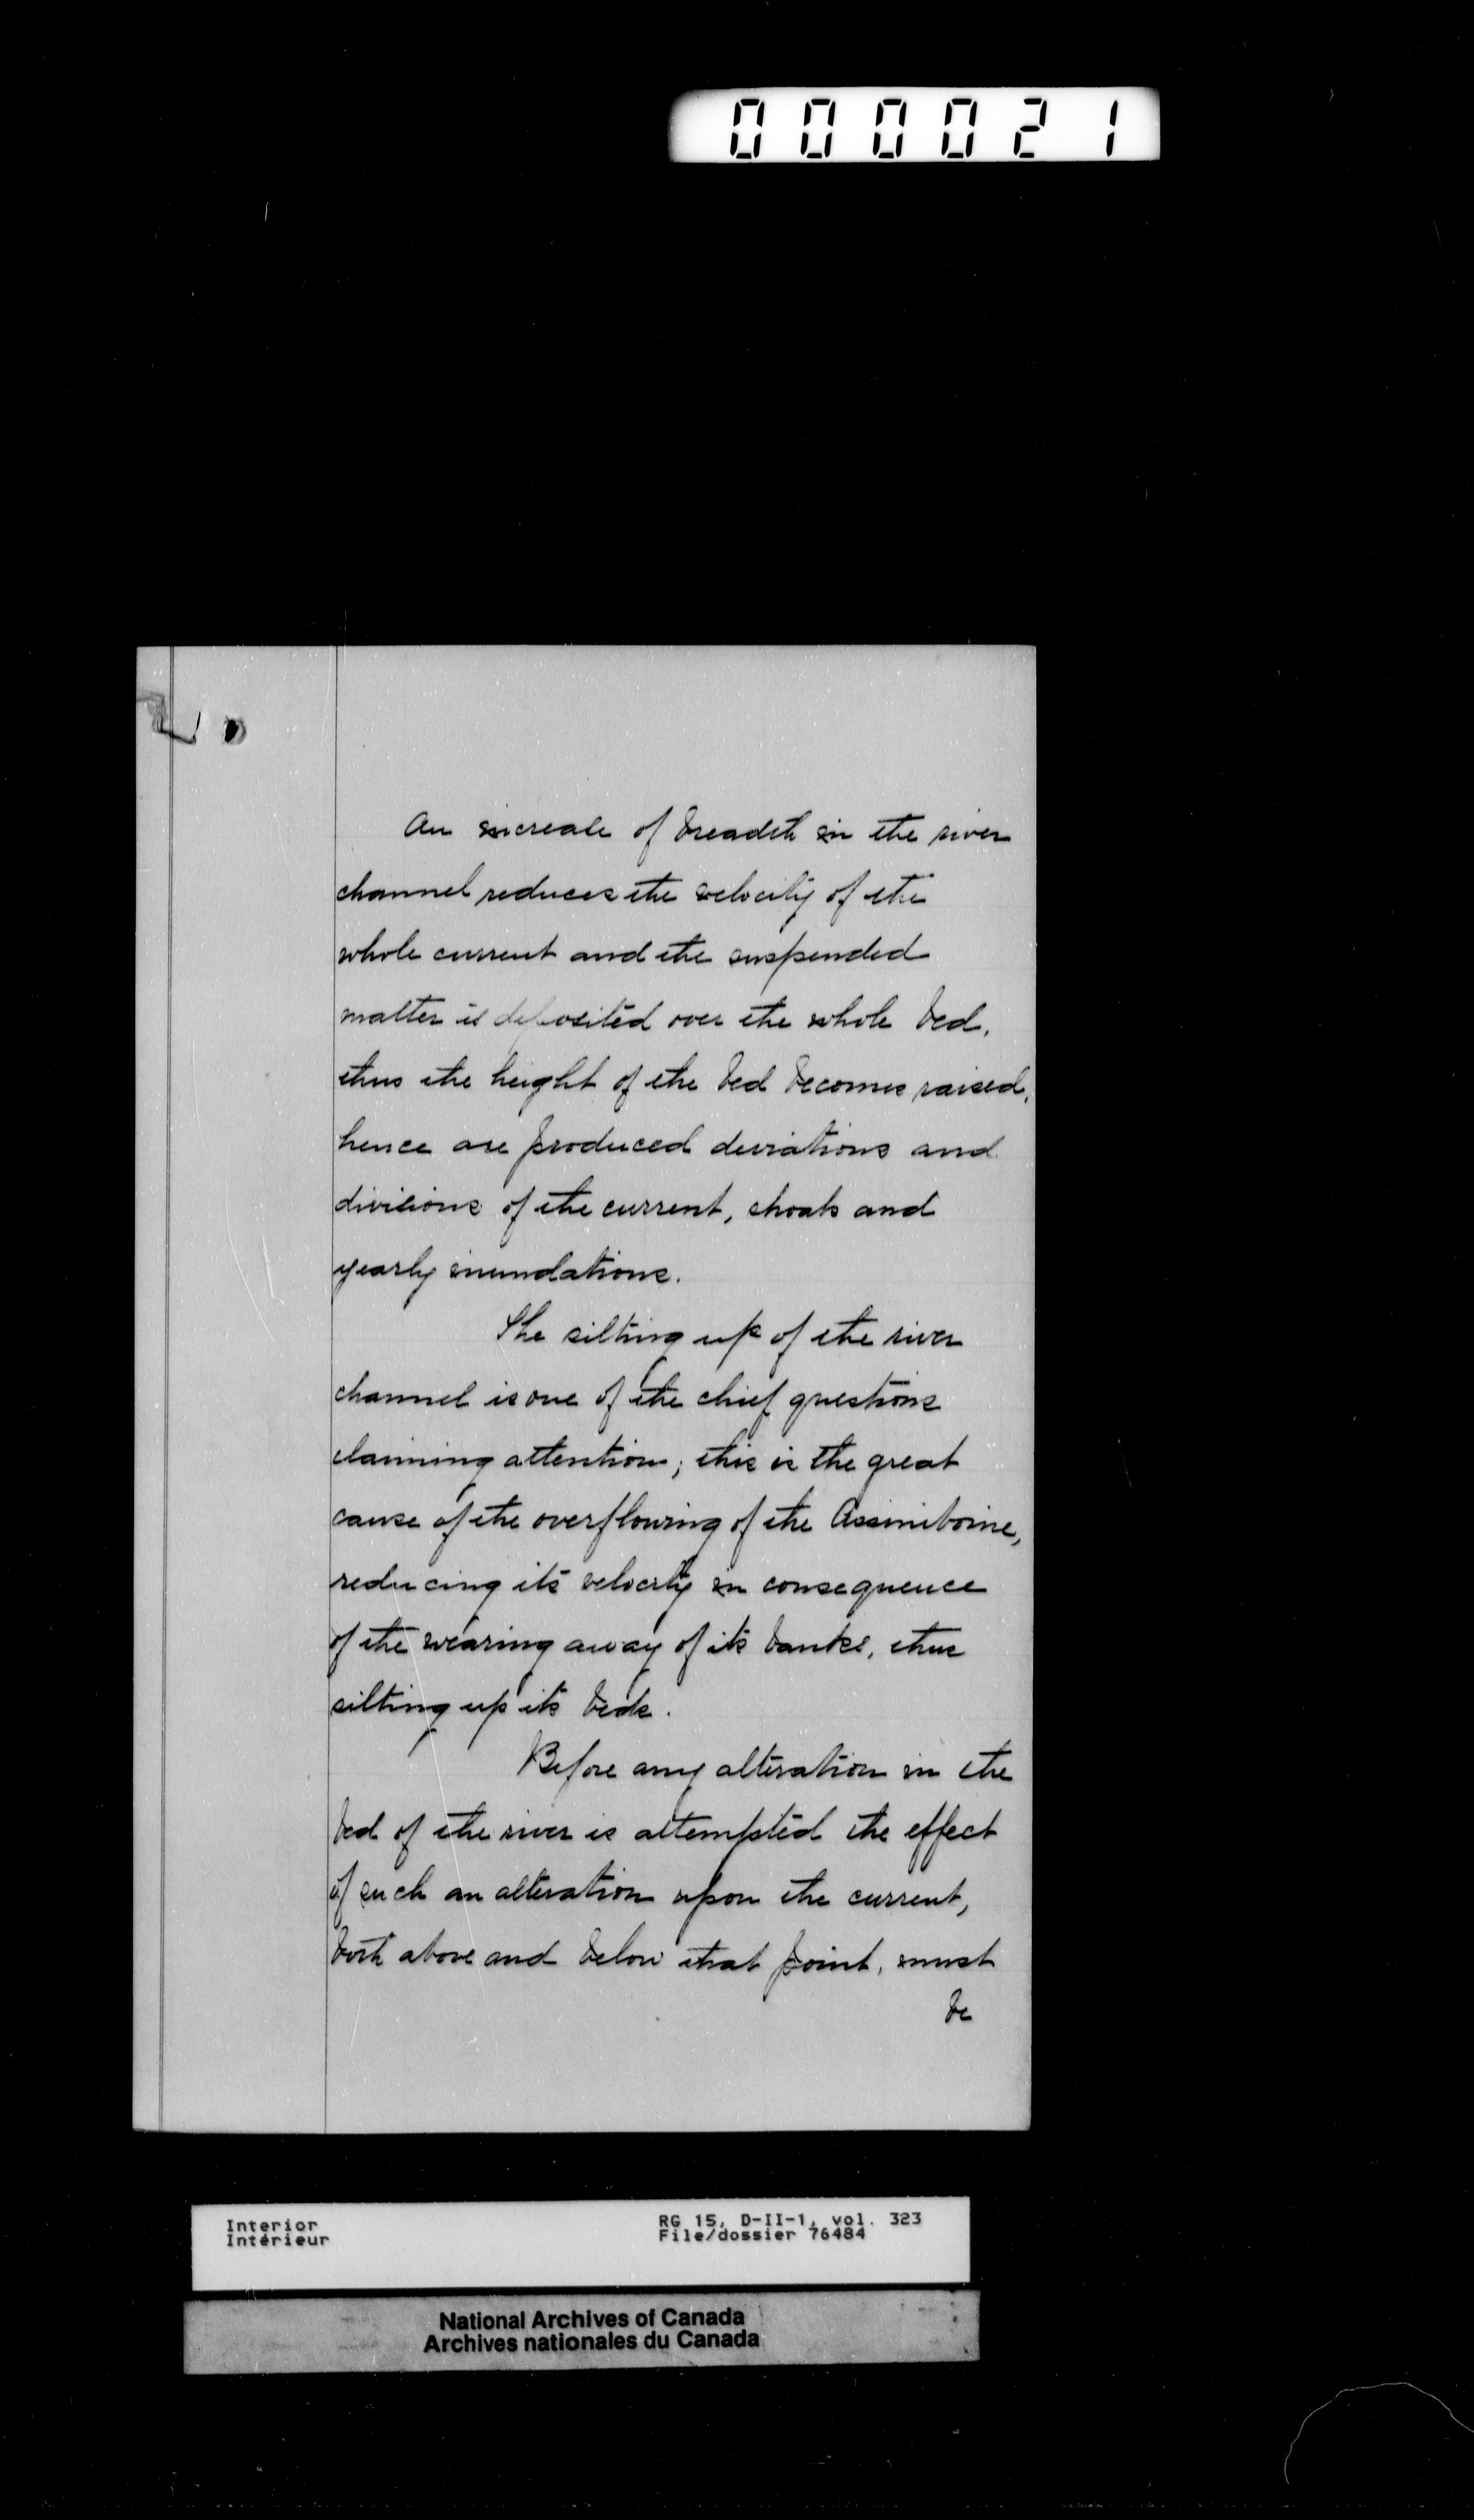 000021
An increase of breadth in the river
channel reduces the velocity of the
whole current and the suspended
matter is deposited over the whole bed,
thus the height of the bed becomes raised,
hence are produced deviations and
divisions of the current, shoals and
yearly inundations.
The silting up of the river
channel is one of the chief questions
claiming attention; this is the great
cause of the overflowing of the Assiniboine,
reducing its velocity in consequence
of the wearing away of its banks, thus
silting up its beds.
Before any alteration in the
bed of the river is attempted the effect
of such an alteration upon the current,
both above and below that point, must
be
Interior
Intérieur
RG 15, D-II-1, vol. 323
File/dossier 76484
National Archives of Canada
Archives nationales du Canada